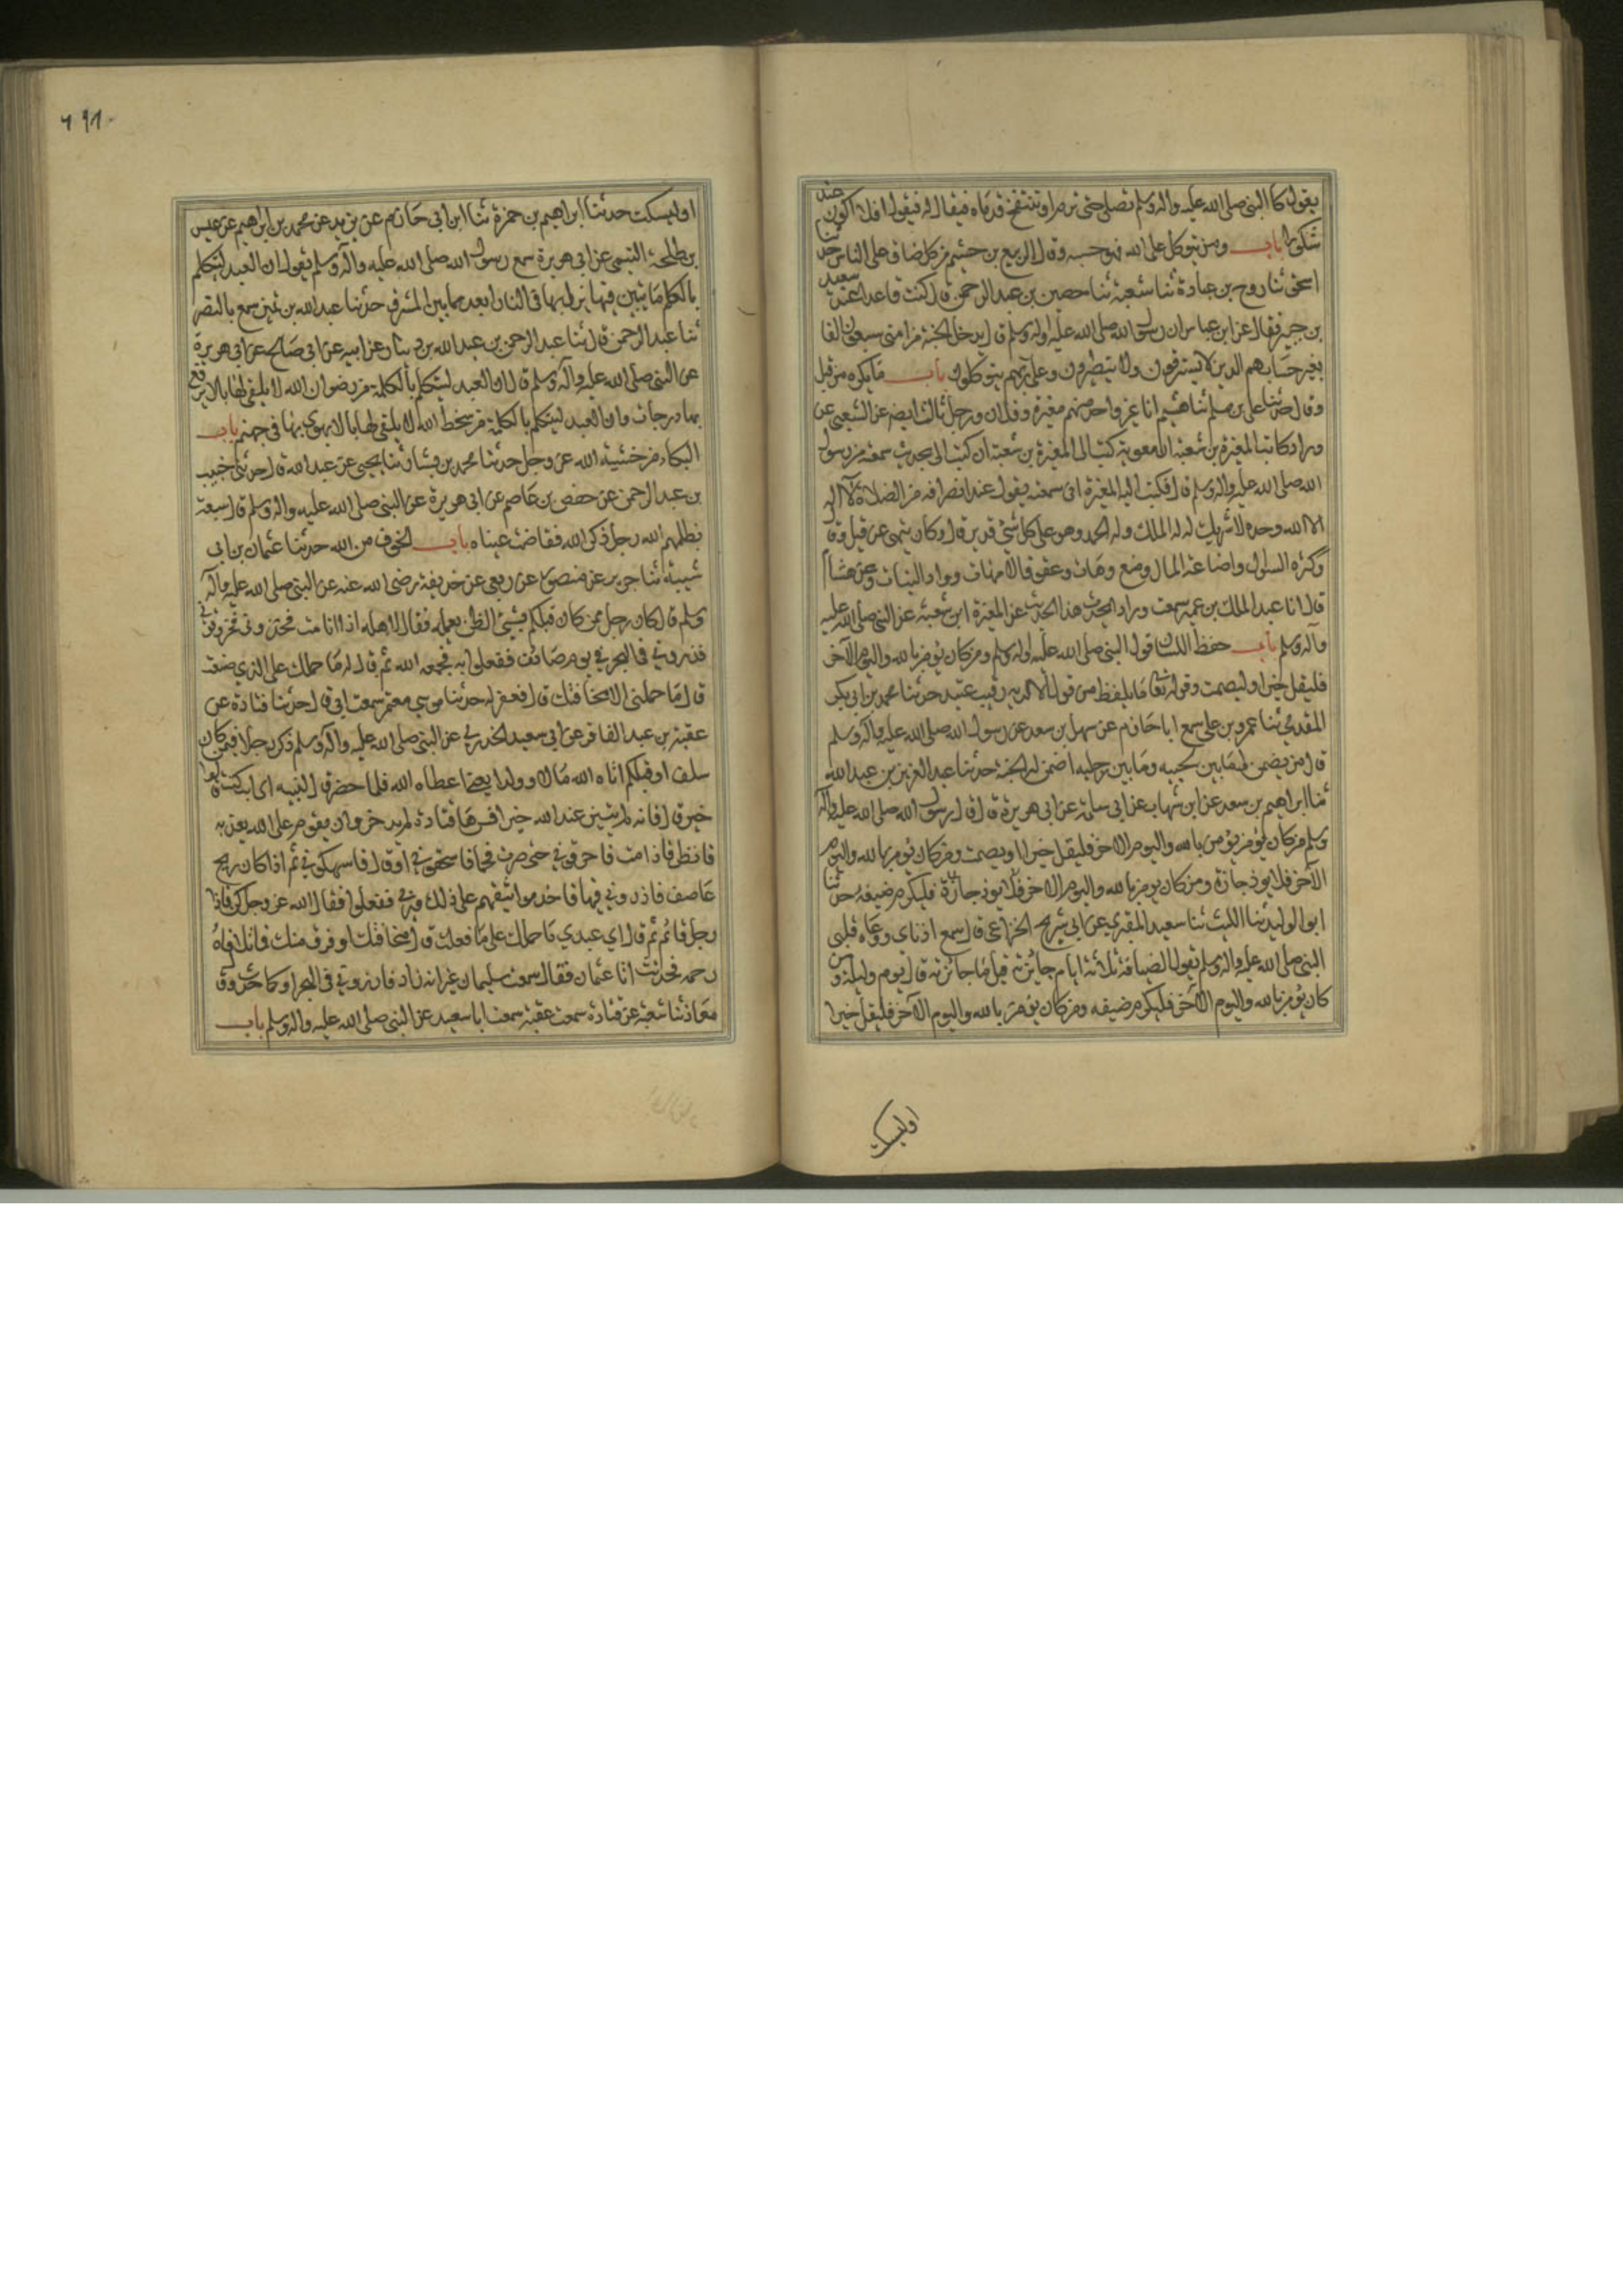 يقول كان النبي صلى الله عليه واله وسلم تصلي حتى ترم او تنتفخ قدماه فيقال له فيقول افلا اكون عبدا
شكورا باب ومن يتوكل على الله فهو حسبه وقال الربيع بن خثيم من كل ضاق على الناس حدثنا
اسحق ثنا روح بن عبادة ثنا شعبة ثنا حصين بن عبد الرحمن قال كنت قاعدا عند سعيد
بن جبير فقال عن ابن عباس ان رسول الله صلى الله عليه واله وسلم قال يدخل الجنة من امتي سبعون الفا
بغير حساب هم الذين لا يسترقون ولا يتطيرون وعلى ربهم يتوكلون باب ما يكره من قيل
وقال حدثنا علي بن مسلم ثنا هشيم انا غير واحد منهم مغيرة وفلان ورجل ثالث ايضه عن الشعبي عن
وراد كاتب المغيرة بن شعبة ان معوية كتب الى المغيرة بن شعبة ان كتب الى بحديث سمعته من رسول
الله صلى الله عليه واله وسلم قال فكتب اليه المغيرة اني سمعته يقول عند انصرافه من الصلاة لا اله
الا الله وحده لا شريك له له الملك وله الحمد وهو على كل شئ قدير قال وكان ينهى عن قيل وقال
وكثرة السوال واضاعة المال ومنع وهات وعقوق الامهات وواد البنات وعن هشام
قال انا عبد الملك بن عمير سمعت وراد ايحدث هذا الحديث عن المغيرة ابن شعبة عن النبي صلى الله عليه
واله وسلم باب حفظ اللسان وقول النبي صلى الله عليه واله وسلم ومن كان يؤمن بالله واليوم الاخر
فليقل خيرا او ليصمت وقوله تعا ما يلفظ من قول الا لديه رقيب عتيد حدثنا محمد بن ابي بكر
المقدمي ثنا عمرو بن علي سمع ابا حازم عن سهل بن سعد عن رسول الله صلى الله عليه واله وسلم
قال من يضمن لي ما بين لحييه وما بين رجليه اضمن له الجنة حدثنا عبد العزيز بن عبد الله
ثنا ابراهيم بن سعد عن ابن شهاب عن ابي سلمة عن ابي هريرة قال قال رسول الله صلى الله عليه واله
وسلم من كان يؤمن يؤمن بالله واليوم الاخر فليقل خيرا او يصمت ومن كان يؤمن بالله واليوم
الآخر فلا يوذ جاره ومن كان يومن بالله واليوم الاخر فلا يوذ جاره فليكرم ضيفه حدثنا
ابو الوليد ثنا الليث ثنا سعيد المقبري عن ابي شريح الخزاعي قال سمع اذناي ووعاه قلبي
النبي صلى الله عليه واله وسلم يقول الضيافة ثلاثة ايام جايزته قيل ما جائزته قال يوم وليلة ومن
كان يؤمن بالله واليوم الآخر فليكرم ضيفه ومن كان يؤمن بالله واليوم الآخر فليقل خيرا
اوليسكت
او ليسكت حدثنا ابراهيم بن حمزة ثنا ابن ابي حازم عن يزيد عن محمد بن ابراهيم عن عيسى
بن طلحة التيمي عن ابي هريرة سمع رسول الله صلى الله عليه واله وسلم يقول ان العبد ليتكلم
بالكلمة ما يتبين فيها يزل بها في النار ابعد مما بين المشرق حدثنا عبد الله بن منير سمع با النضر
ثنا عبد الرحمن قال ثنا عبد الرحمن بن عبد الله بن دينار عن ابيه عن ابي صالح عن ابي هريرة
عن النبي صلى الله عليه واله وسلم قال ان العبد ليتكلم بالكلمة من رضوان الله لا يلقي لها بالا يرفع
بها درجات وان العبد ليتكلم بالكلمة من سخط الله لا يلقي لها بالا يهوي بها في جهنم باب
البكاء من خشية الله عز وجل حدثنا محمد بن بشار ثنا يحيى عن عبد الله قال حدثني خبيب
بن عبد الرحمن عن حفص بن عاصم عن ابي هريرة عن النبي صلى الله عليه واله وسلم قال سبعة
يظلهم الله رجل ذكر الله ففاضت عيناه باب الخوف من الله حدثنا عثمان بن ابي
شيبة ثنا جرير عن منصور عن ربعي عن حذيفة رضى الله عنه عن النبي صلى الله عليه واله
وسلم قال كان رجل ممن كان قبلكم يسئ الظن بعمله فقال لاهله اذا انا مت فخذوني
فذروني في البحر في يوم صائف ففعلوا به فجمعه الله ثم قال له ما حملك على الذي صنعت
قال ما حملني الا مخافتك قال فغفر له حدثنا موسى معتمر سمعت ابي قال حدثنا قتادة عن
عقبة بن عبد الغافر عن ابي سعيد الخدري عن النبي صلى الله عليه واله وسلم ذكر رجلا فيمن كان
سلف او قبلكم اتاه الله مالا وولدا يعنى اعطاه الله فلما حضر قال لبنيه اي اب كنت قالوا
خير قال فانه لم يبتئر عند الله خيرا فسرها قتادة لم يدخر وان يقدم على الله يعذبه
فانظروا فاذا مت فاحرقوني حتى صرت فحما فاسحقوني او قال فاسهكوني ثم اذا كان ريح
عاصف فاذروني فيها فاخذ مواثيقهم على ذلك وربي ففعلوا فقال الله عز وجل كن فاذا
رجل قائم ثم قال اي عبدي ما حملك على ما فعلت قال مخافتك او فرق منك فاتلافاه
رحمه فحدثت ابا عثمان فقال سمعت سليمان غير انه زاد فاذروني في البحر او كما حدث وقال
معاذ ثنا شعبة عن قتادة سمعت عقبة سمعت ابا سعيد عن النبي صلى الله عليه واله وسلم باب